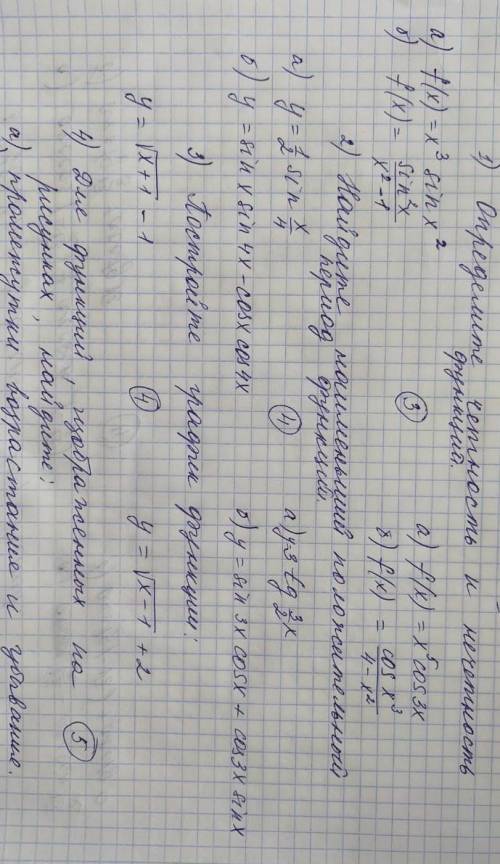 1) Определите четность и нечетность
функций.
а) f(x) = x³ sin x²
б) f(x) = sin 3x / x² - 1
③
а) f(x) = x⁵ cos 3x
б) f(x) = cos x³ / 4 - x²
2) Найдите наименьший положительный
период функции.
а) y = 1/2 sin x/4
б) y = sin x sin 4x - cos x cos 4x
④
а) y = 3 tg 3/2 x
б) y = sin 3x cos x + cos 3x sin x
3) Постройте график функции:
y = √x+1 - 1
④
y = √x-1 + 2
4) Для функций, изображенных на
рисунках, найдите:
⑤
а) промежутки возрастание и убывание.